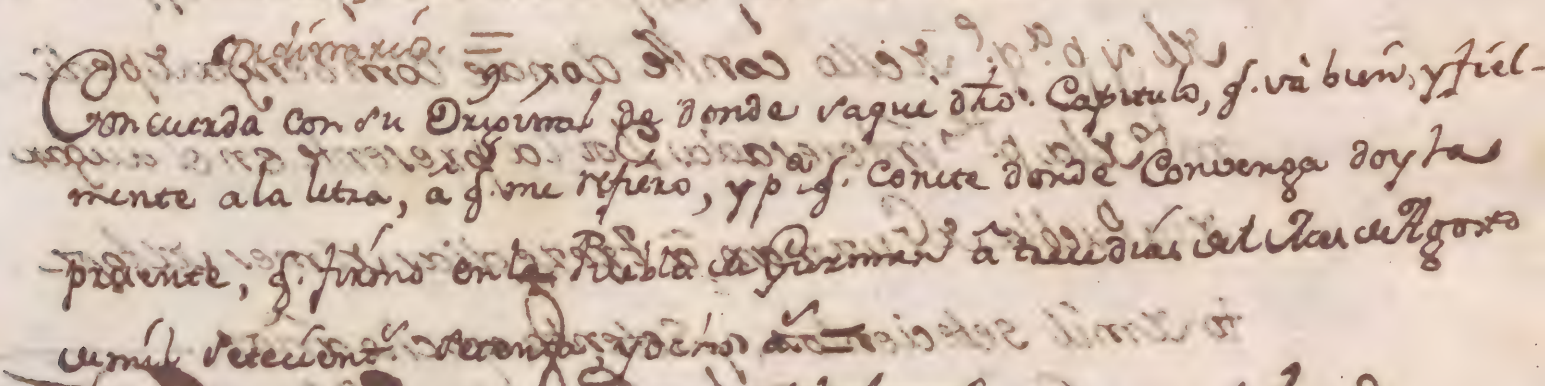 Ordinario. =
Concuerda con su Original de donde saqué dho. Capitulo, q. vá bien, y fiel-
mente a la letra, á q. me refiero, y pª. q. conste donde Convenga doy la
presente, q. firmo en la Puebla de Guzmán â trece dias del Mes de Agosto
de mil setecient.s setenta, y años =